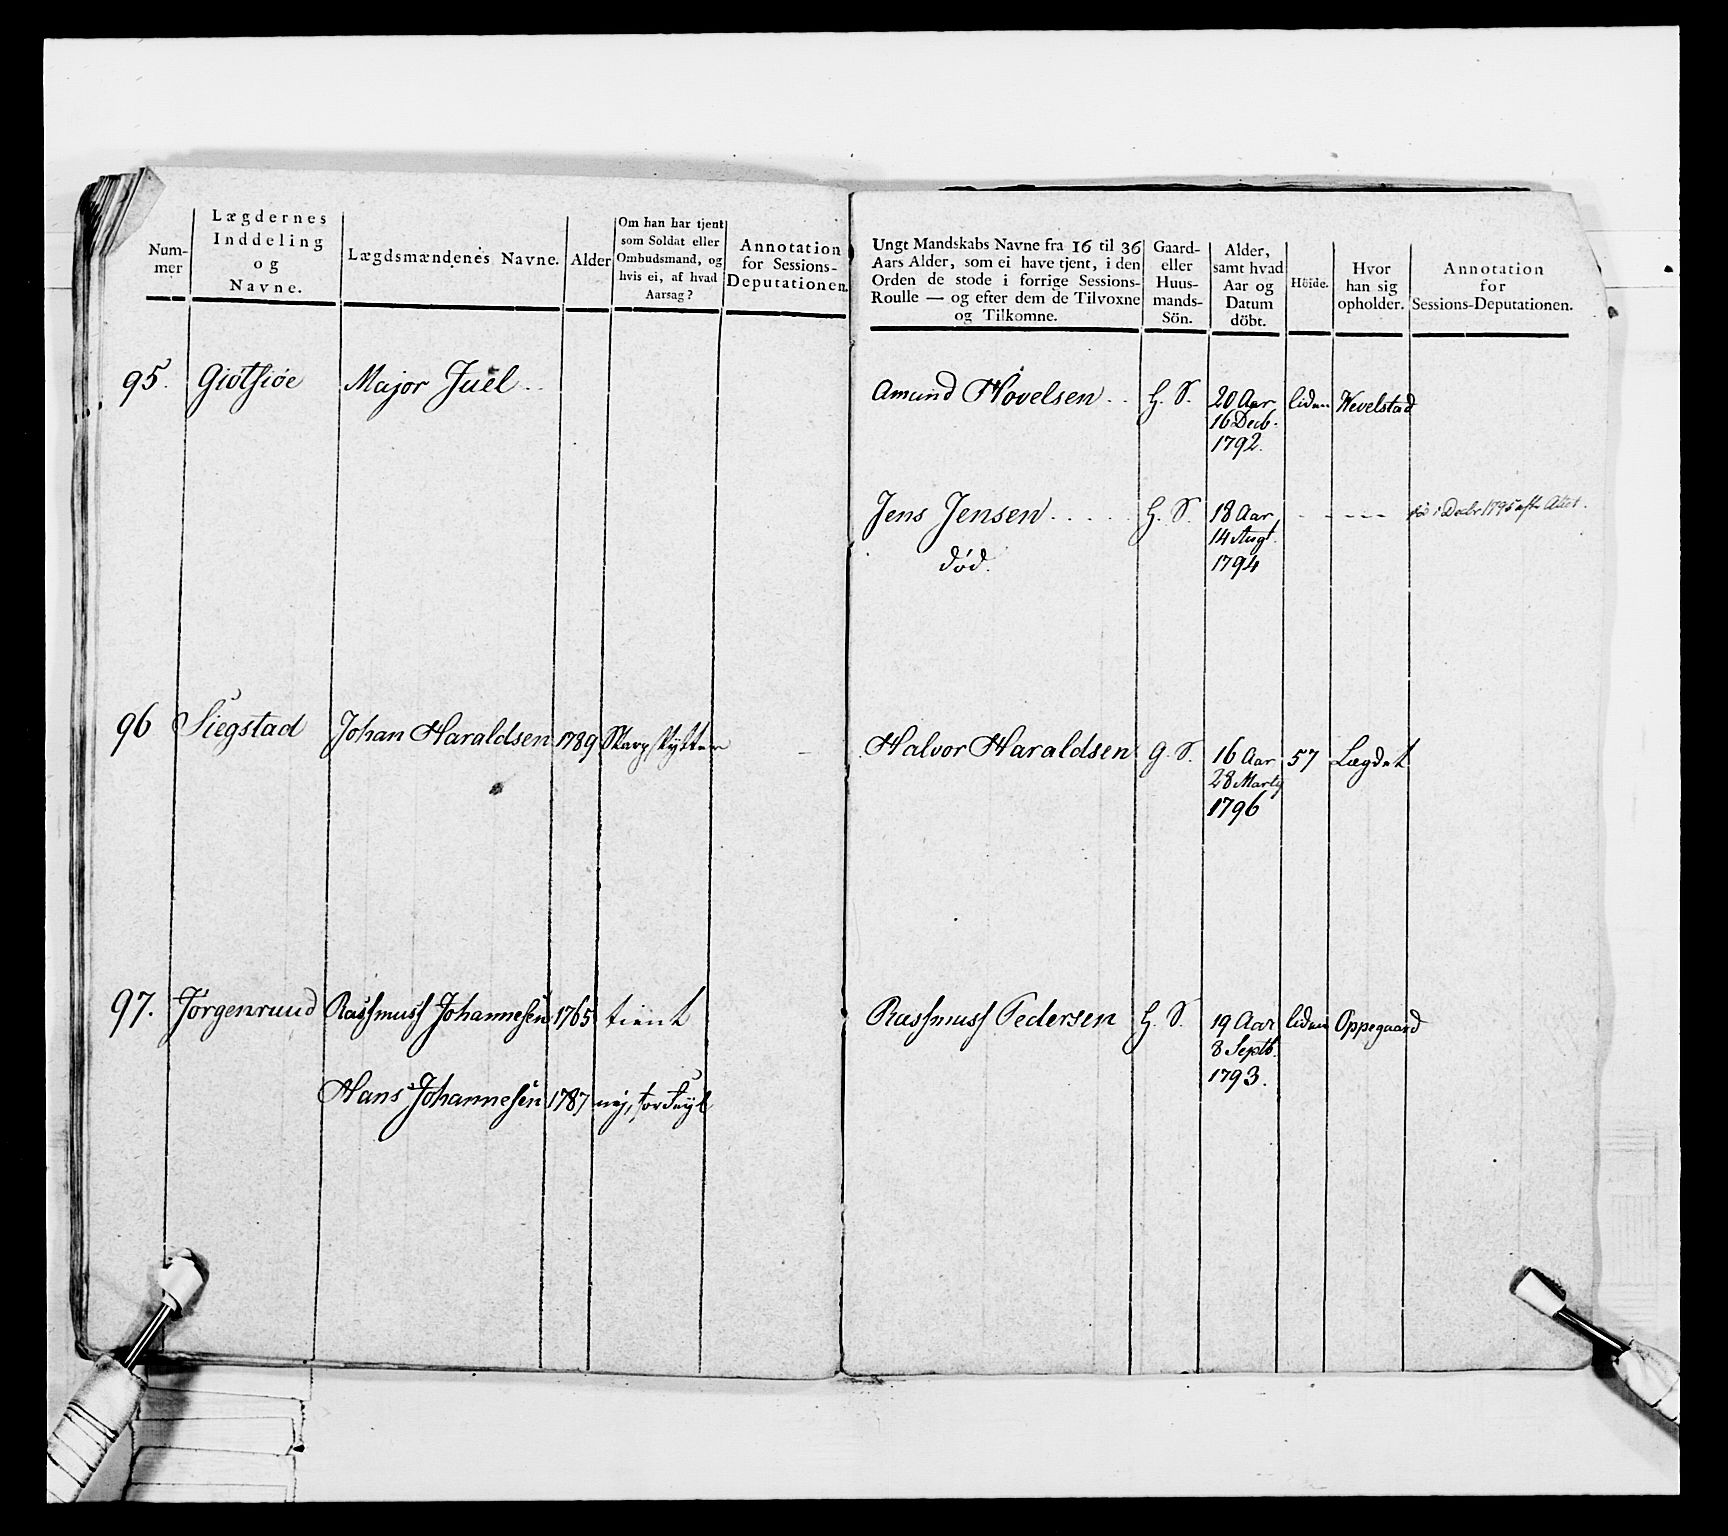 Num-
mer
Lægdernes
Inddeling
og
Navne.
Lægdsmændenes Navne.
Alder
Om han har tjent
som Soldat eller
Ombudsmand, og
hvis ei, af hvad
Aarsag?
Annotation
for Sessions-
Deputationen.
95. Giøtsiøe Major Juel ..
96 Siegstad Johan Haraldsen 1789 Skarpskytter
97. Jørgenruud Rassmuss Johannesen 1765 tient
Hans Johannesen 1787 nej,
Ungt Mandskabs Navne fra 16 til 36
Aars Alder, som ei have tjent, i den
Orden de stode i forrige Sessions-
Roulle — og efter dem de Tilvoxne
og Tilkomne.
Gaard-
eller
Huus-
mands-
Sön.
Alder,
samt hvad
Aar og
Datum
döbt.
Höide.
Hvor
han sig
opholder.
Annotation
for
Sessions-Deputationen.
Amund Hovelsen .. H. S. 20 Aar liden Wevelstad
16 Decb.
1792.
Jens Jensen ..... H. S. 18 Aar - - - - -
død.
14 Augt.
1794
Halvor Haraldsen G. S. 16 Aar 57 Lægdet
28 Marty
1796
Rassmuss Pedersen H. S. 19 Aar liden Oppegaard
8 Septb.
1793.